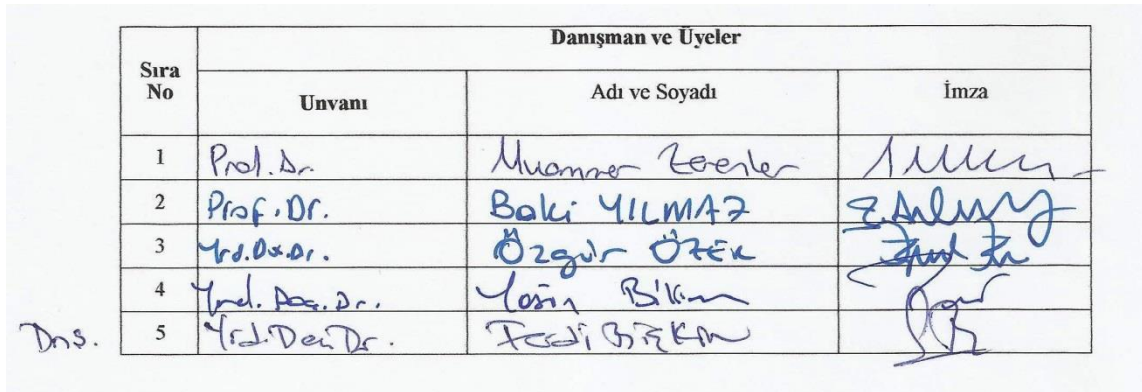 Danışman ve Üyeler
Sıra No Unvanı Adı ve Soyadı İmza
1 Prof. Dr. Muammer Zerenler
2 Prof. Dr. Baki YILMAZ
3 Yrd. Doç. Dr. Özgür ÖZER
4 Yrd. Doç. Dr. Yasin
Dnş. 5 Yrd. Doç. Dr. Ferdi